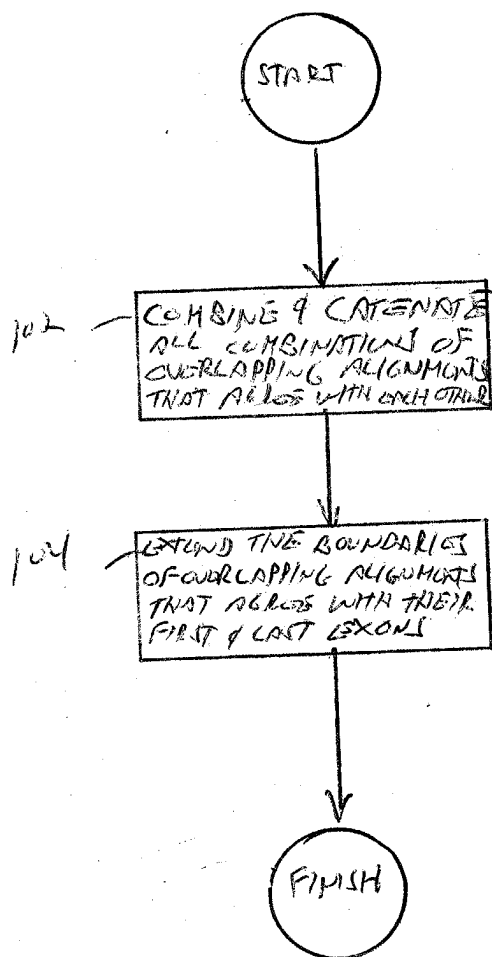 START
102
COMBINE & CATENATE
ALL COMBINATIONS OF
OVERLAPPING ALIGNMENTS
THAT AGREE WITH EACH OTHER
104
EXTEND THE BOUNDARIES
OF OVERLAPPING ALIGNMENTS
THAT AGREE WITH THEIR
FIRST & LAST EXONS
FINISH